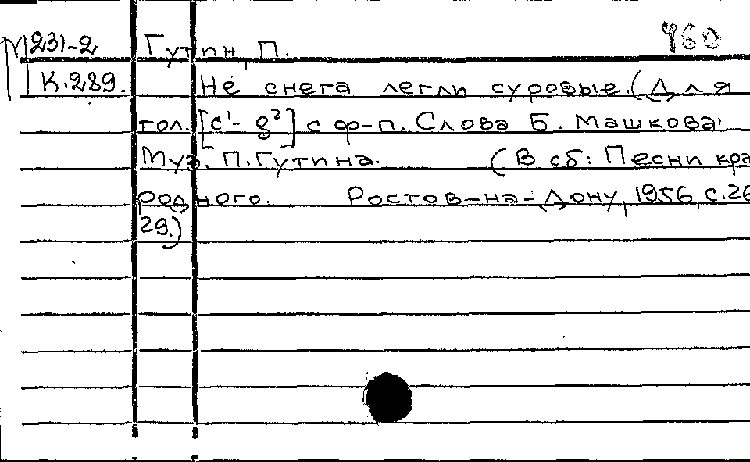 М231-2 Гутин, П. 960
К.289. Не снега легли суровые. (Для
гол. [c¹- g²] с ф-п. Слова Б. Машкова.
Муз. П. Гутина. (В сб: Песни кра
родного. Ростов-на-Дону, 1956, с.26
29.)